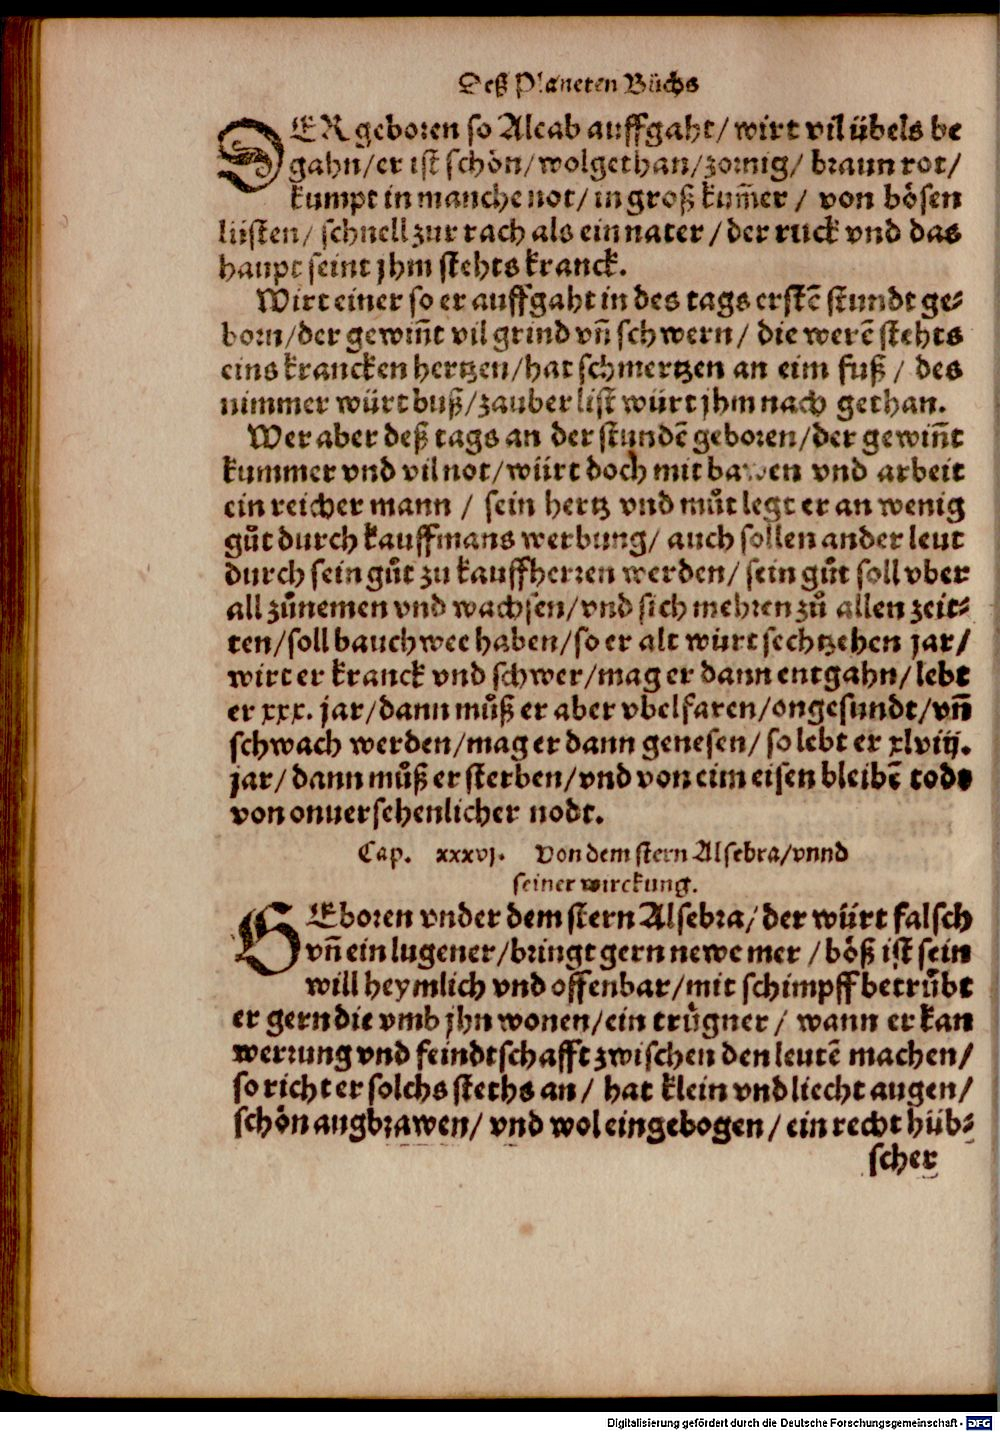 Deß Planeten Bůchs
DER geboren so Alcab auffgaht/ wirt vil übels be
gahn/er ist schön/wolgethan/zornig/ braun rot/
kumpt in manche not/ in groß kum̄er / von bösen
lüsten/ schnell zur rach als ein nater / der ruck vnd das
haupt seint jhm stehts kranck.
Wirt einer so er auffgaht in des tags erstē stundt ge⸗
born/der gewiñt vil grind vñ schwern/ die werē stehts
eins krancken hertzen/hat schmertzen an eim fuß / des
nimmer würt buß/zauber list würt jhm nach gethan.
Wer aber deß tags an der stundē geboren/der gewiñt
kummer vnd vil not/würt doch mit bawen vnd arbeit
ein reicher mann / sein hertz vnd můt legt er an wenig
gůt durch kauffmans werbung/ auch sollen ander leut
durch sein gůt zu kauffherren werden/ sein gůt soll vber
all zůnemen vnd wachsen/vnd sich mehren zů allen zeit⸗
ten/soll bauchwee haben/so er alt würt sechtzehen jar/
wirt er kranck vnd schwer/mag er dann entgahn/lebt
er xxx. jar/dann můß er aber vbelfaren/ongesundt/vñ
schwach werden/mag er dann genesen/ so lebt er xlviij.
jar/ dann můß er sterben/vnd von eim eisen bleibē todt
von onuersehenlicher nodt.
Cap. xxxvj. Von dem stern Alsebra/vnnd
seiner wirckung.
GEboren vnder dem stern Alsebra/ der würt falsch
vñ ein lugener/bringt gern newe mer / böß ist sein
will heymlich vnd offenbar/mit schimpff betrůbt
er gern die vmb jhn wonen/ein trůgner / wann er kan
werrung vnd feindtschafft zwischen den leutē machen/
so richt er solchs steths an / hat klein vnd liecht augen/
schön augbrawen/ vnd wol eingebogen / ein recht hüb⸗
scher
Digitalisierung gefördert durch die Deutsche Forschungsgemeinschaft - DFG